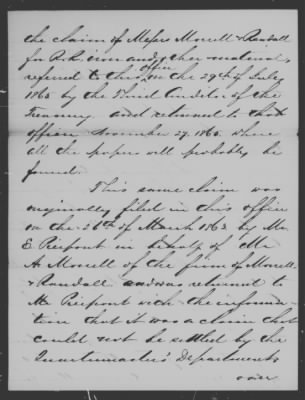 the claim of Messrs Morrell & Randall
for R.R. iron and other material,
referred to this office on the 29th of July
1865 by the Third Auditor of the
Treasury and returned to that
office November 27. 1865. where
all the papers will probably be
found.
This same claim was
originally filed in this office
on the of March 1863 by Mr
E Pierpont in behalf of Mr
A Morrell of the firm of Morrell
& Randall and was returned to
Mr Pierpont with the informa-
tion that it was a claim that
could not be settled by the
Quartermaster's Department
over